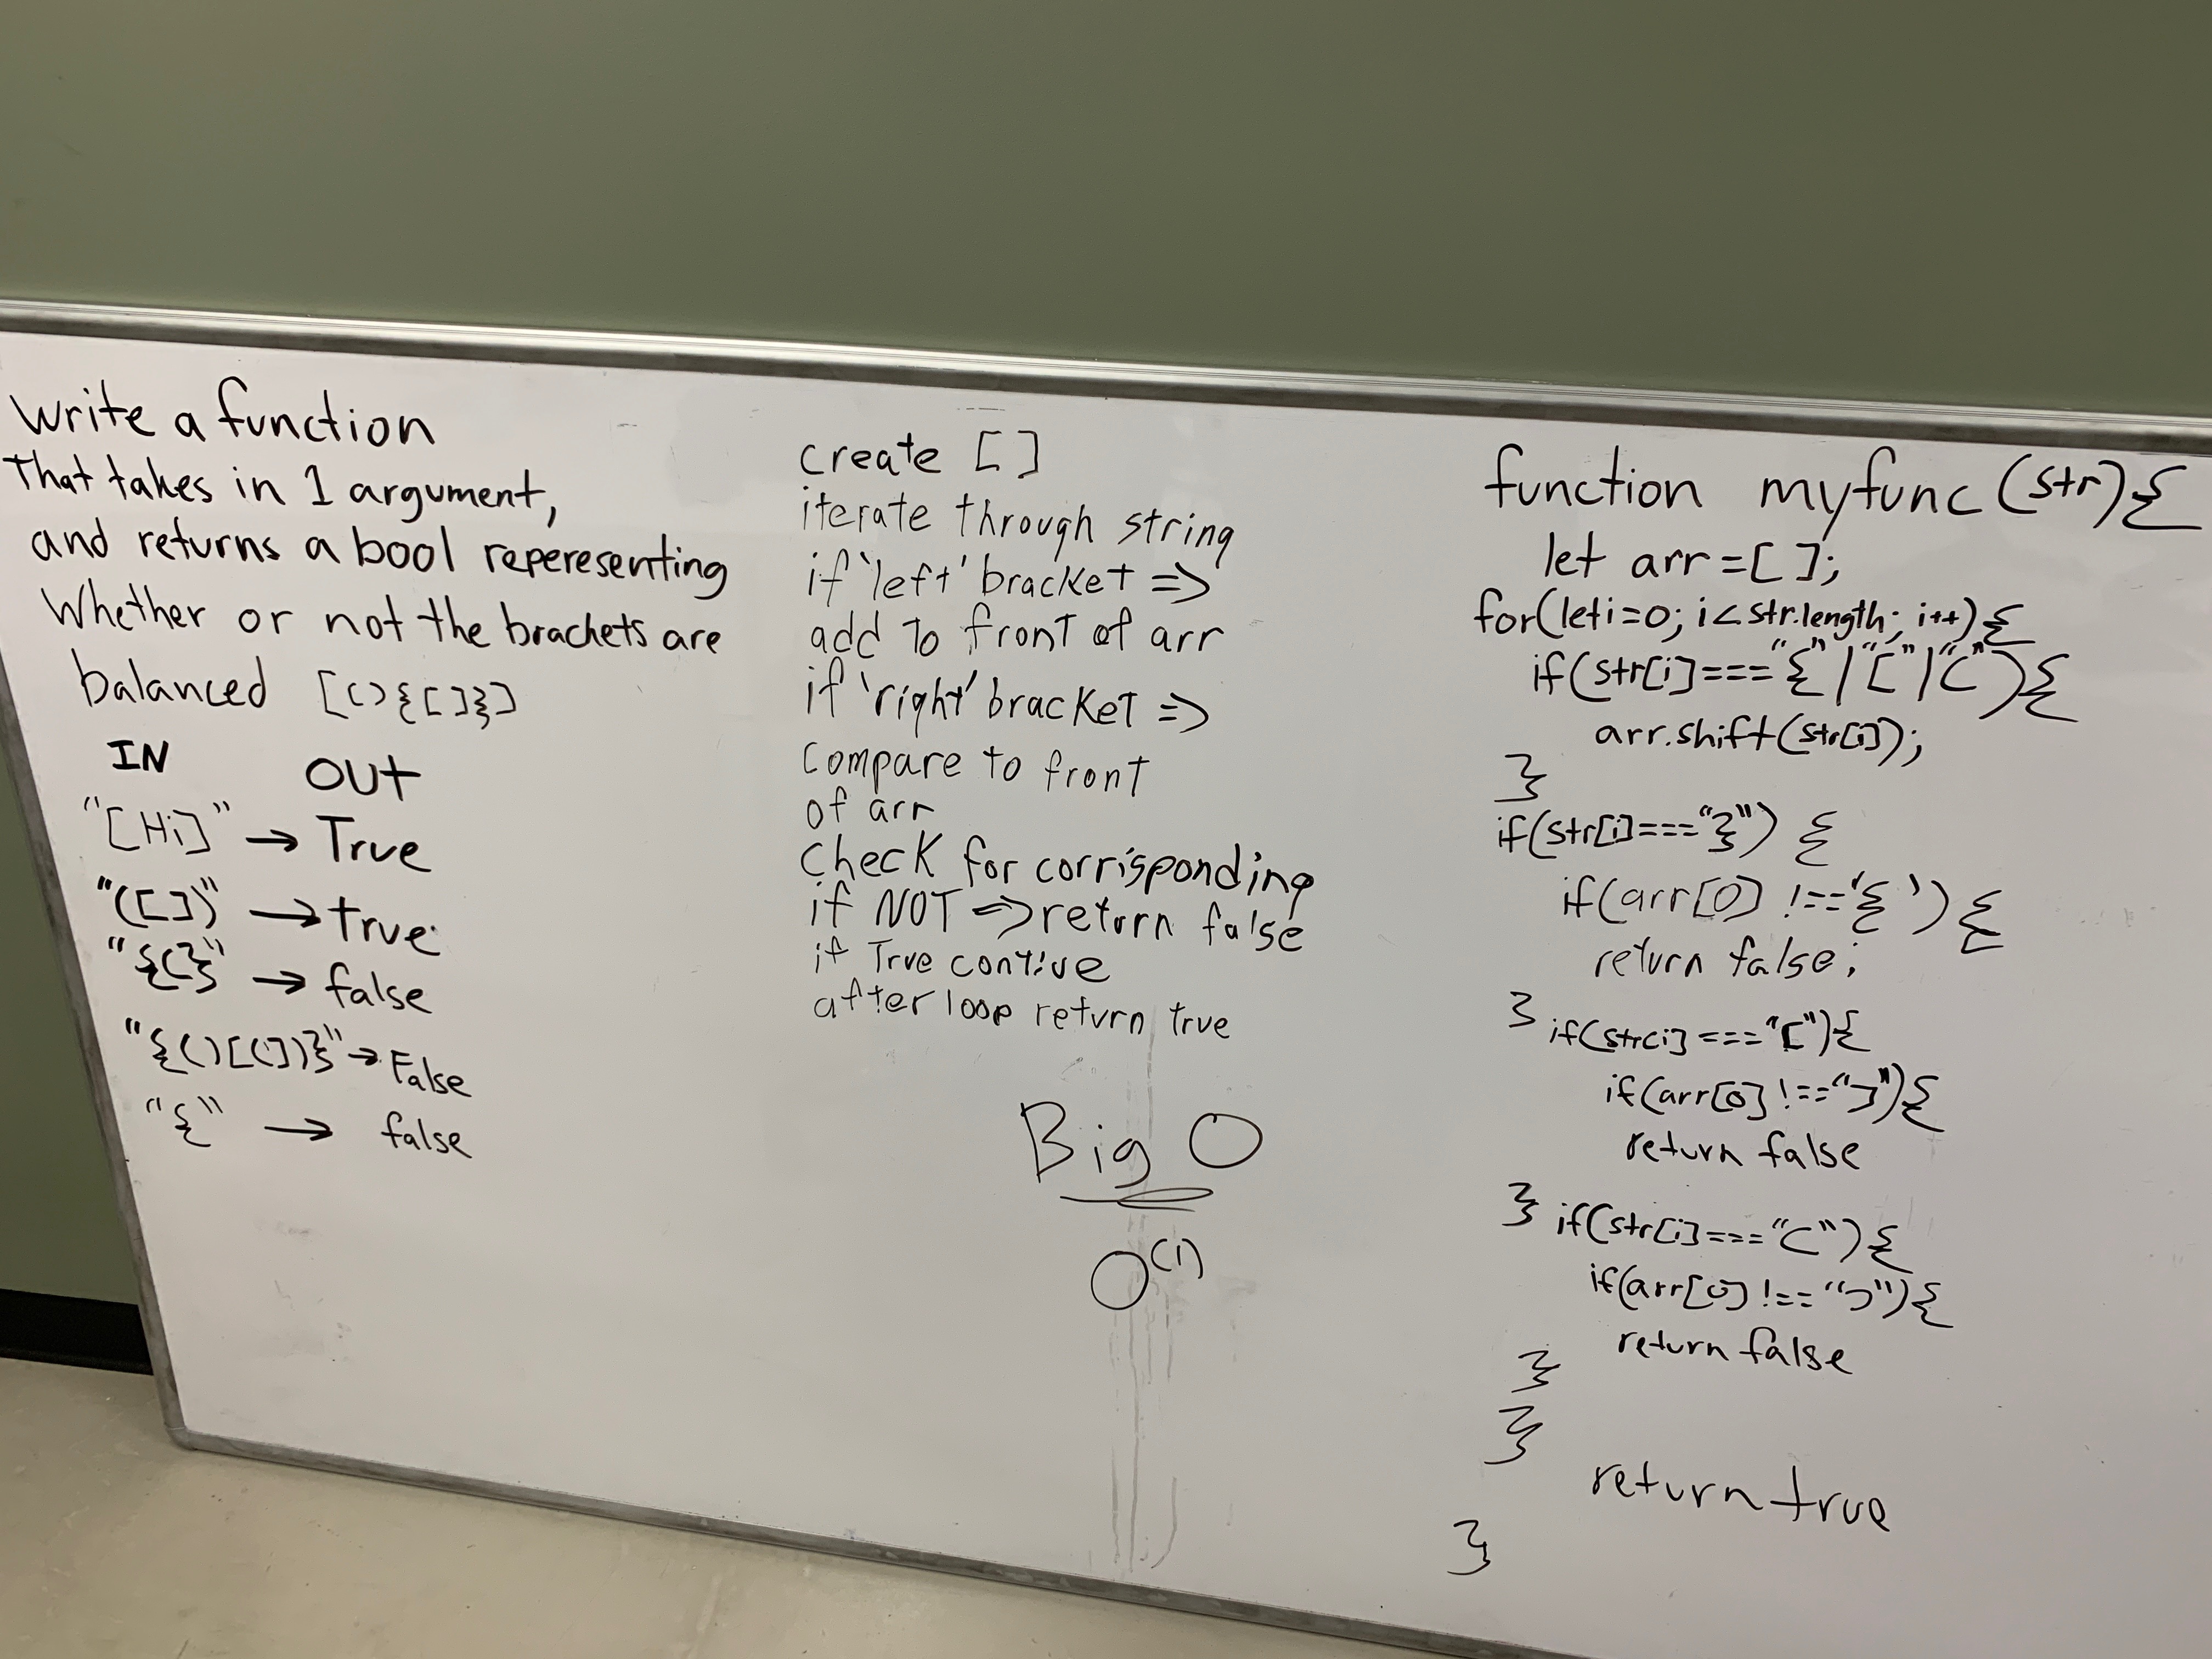 write a function
That takes in 1 argument,
and returns a bool reperesenting
Whether or not the brackets are
balanced [(){[]}]
IN OUT
"[Hi]" → True
"([])" → true
"{(}" → false
"{()[(])}" → False
"{" → false
create []
iterate through string
if 'left' bracket =>
add To front of arr
if 'right' bracket =>
compare to front
of arr
check for corrisponding
if NOT => return false
if True contive
after loop return true
Big O
O(1)
function myfunc(str){
let arr = [];
for(let i=0; i<str.length; i++){
if(str[i]==="{"|"["|"("){
arr.shift(str[i]);
}
if(str[i]==="}") {
if(arr[0] !=='{'){
return false;
} if(str[i] === "["){
if(arr[0] !== "]"){
return false
} if(str[i]==="("){
if(arr[0] !== ")"){
return false
}
}
return true
}